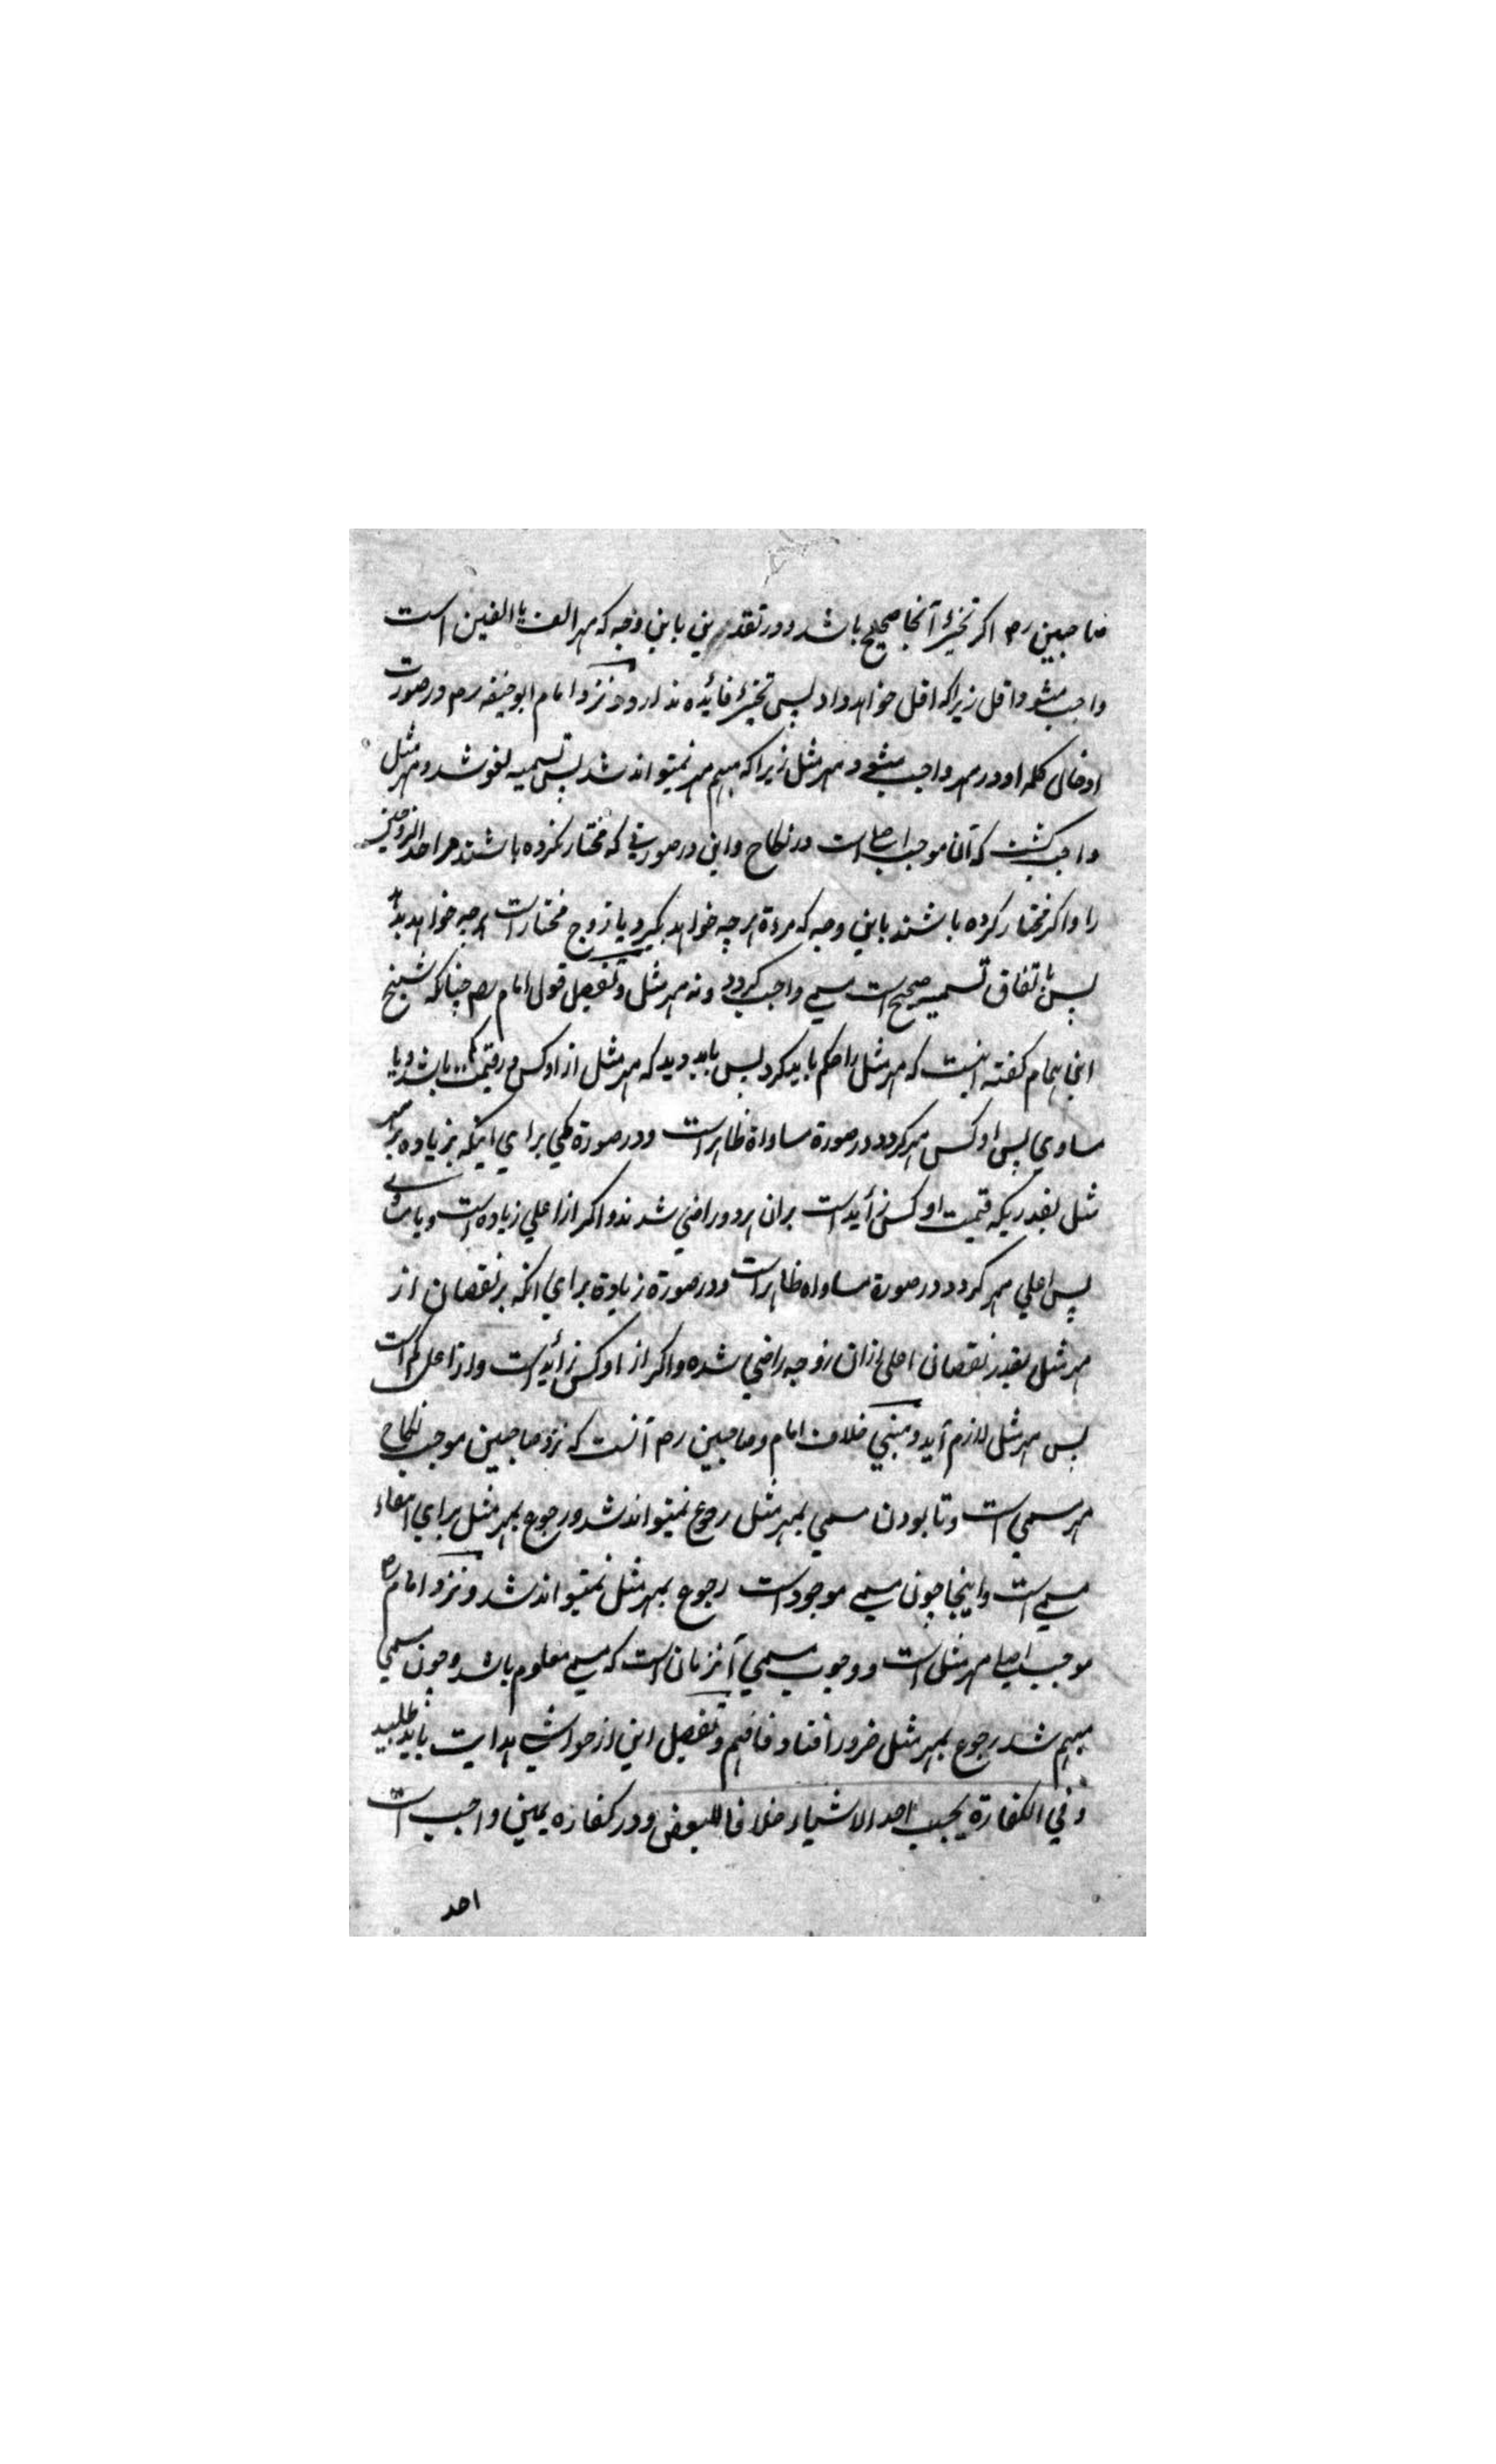 صاحبین رح اکر تخییر آنجا صحیح باشد و در تقدیر نی باین وجه که مهر الف یا الفین است
واجب میشود اقل زیرا که اقل خواهد داد پس تخییر فائیده ندارد و نزد امام ابو حنیفه رح در صورت
ادخال کلمه او در مهر واجب میشود مهر مثل زیرا که مبهم مهر نمیتواند شد پس تسمیه لغو شد و مهر مثل
واجب کشت که آن موجب اصلی است در نکاح و این در صورتی که مختار نکرده باشند هر احد الزوجین
را و اکر مختار کرده باشند باین وجه که مرءة هر چه خواهد بکیرد یا زوج مختار است هر چه خواهد بدهد
پس باتفاق تسمیه صحیح است مسمی واجب کردد و نه مهر مثل و تفصیل قول امام رح چنانکه شیخ
ابن الهمام کفته اینست که مهر مثل را حکم باید کرد پس باید دید که مهر مثل از اوکس در قیمت کم باشد و یا
مساوی پس اوکس مهر کردد در صورة مساواة ظاهر است و در صورة کمی برای اینکه بزیاده بر مهر
مثل بقدریکه قیمت اوکس زائد است بران هر دو راضی شدند و اکر از اعلی زیاده است و یا مساوی
پس اعلی مهر کردد در صورة مساواه ظاهر است و در صورة زیادة برای انکه بر نقصان از
مهر مثل بقدر نقصان اعلی ازان زوجه راضی شده و اکر از اوکس زائد است و از اعلی کم است
پس مهر مثل لازم آید و مبنی خلاف امام و صاحبین رح آنست که نزد صاحبین موجب نکاح
مهر مسمی است و تا بودن مسمی بمهر مثل رجوع نمیتواند شد و رجوع بمهر مثل برای انتفاء
مسمی است و اینجا چون مسمی موجود است رجوع بمهر مثل نمیتواند شد و نزد امام رح
موجب اصلی مهر مثل است و وجوب مسمی آنزمان است که مسمی معلوم باشد و چون مسمی
مبهم شد رجوع بمهر مثل ضرور افتاد فافهم و تفصیل این از حواشی هدایت باید طلبید
و فی الکفارة یجب احد الاشیاء خلافا للبعض و در کفاره یمین واجب است
احد